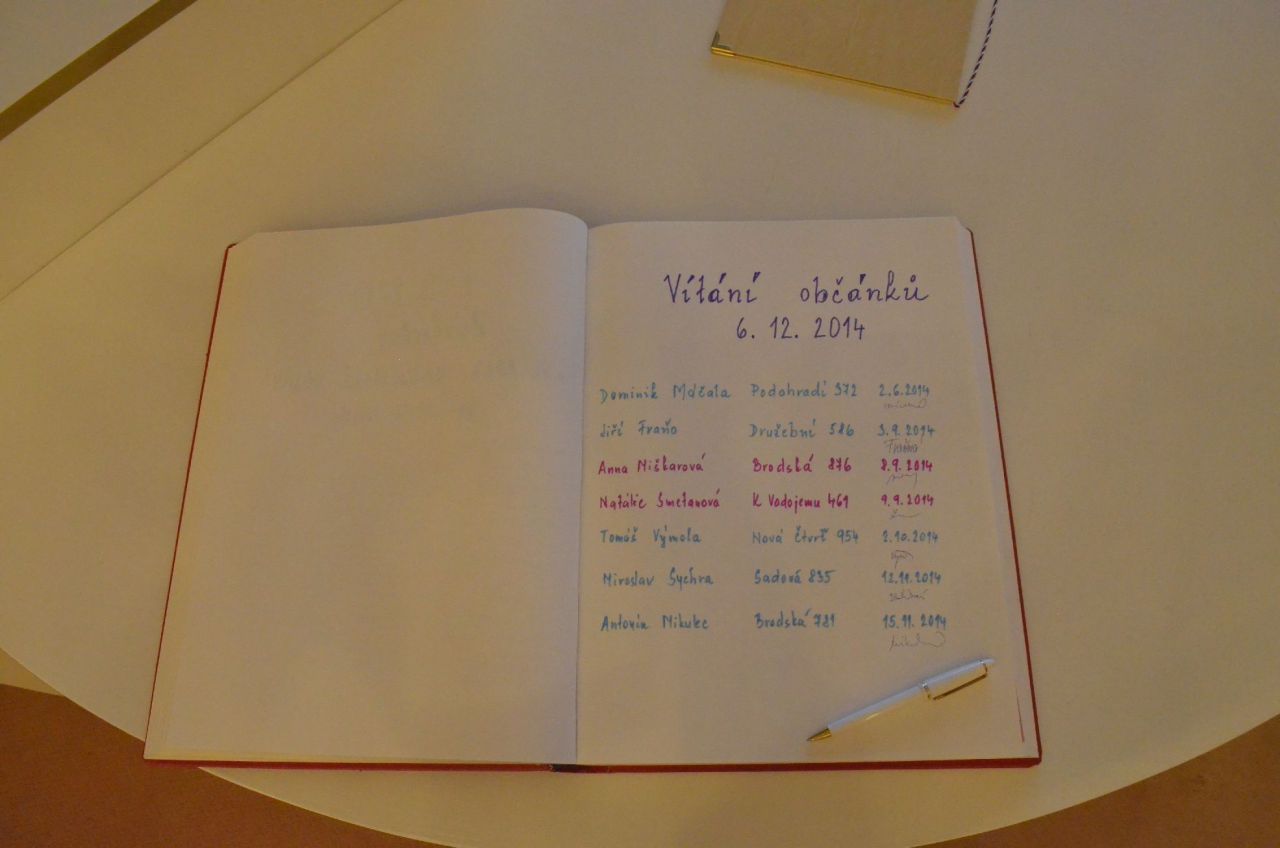 Vítání občánků
6. 12. 2014
Dominik Podohradí 372 2.6.2014
Jiří Fraňo Družební 586 3.9.2014
Anna Miškarová Brodská 876 8.9.2014
Natálie Smetanová K Vodojemu 461 9.9.2014
Tomáš Výmola Nová čtvrť 954 2.10.2014
Miroslav Sychra Sadová 835 12.11.2014
Antonín Mikulec Brodská 781 15.11.2014